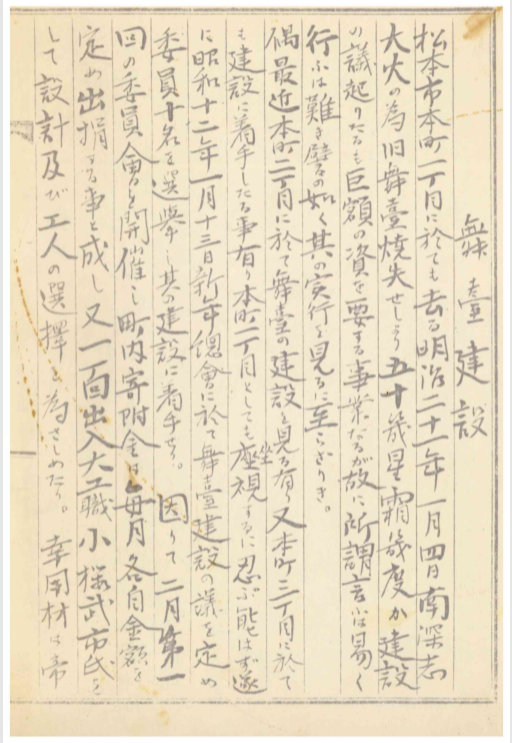 舞臺建設
松本市本町一丁目に於ても去る明治二十一年一月四日南深志
大火の為旧舞臺焼失せしより五十幾星霜幾度か建設
の議起りたるも巨額の資を要する事業なるが故に所謂言ふは易く
行ふは難き譬の如く其の実行を見るに至らざりき。
偶最近本町二丁目に於て舞臺の建設を見る有り又本町三丁目に於て
も建設に着手したる事有り本町一丁目としても座視するに忍ぶ能はず遂
に昭和十二年一月十三日新年總會に於て舞臺建設の議を定め
委員十名を選挙し其の建設に着手せり。因りて二月第一
回の委員會を開催し町内寄附金は毎月各自金額を
定め出捐する事と成し又一面出入大工職小様武市氏を
して設計及び工人の選擇を為さしめたり。幸用材は帝